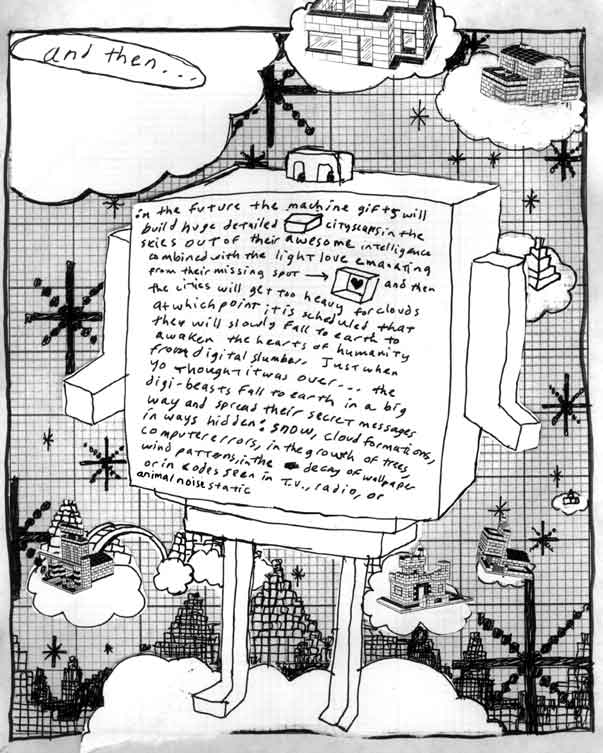 and then...
in the future the machine gifts will
build huge detailed cityscapes in the
skies out of their awesome intelligence
combined with the light love emanating
from their missing spot → and then
the cities will get too heavy for clouds
at which point it is scheduled that
they will slowly fall to earth to
awaken the hearts of humanity
from digital slumber. Just when
yo thought it was over... the
digi-beasts fall to earth in a big
way and spread their secret messages
in ways hidden: snow, cloud formations,
computer errors, in the growth of trees,
wind patterns, in the decay of wallpaper
or in codes seen in T.V., radio, or
animal noise static